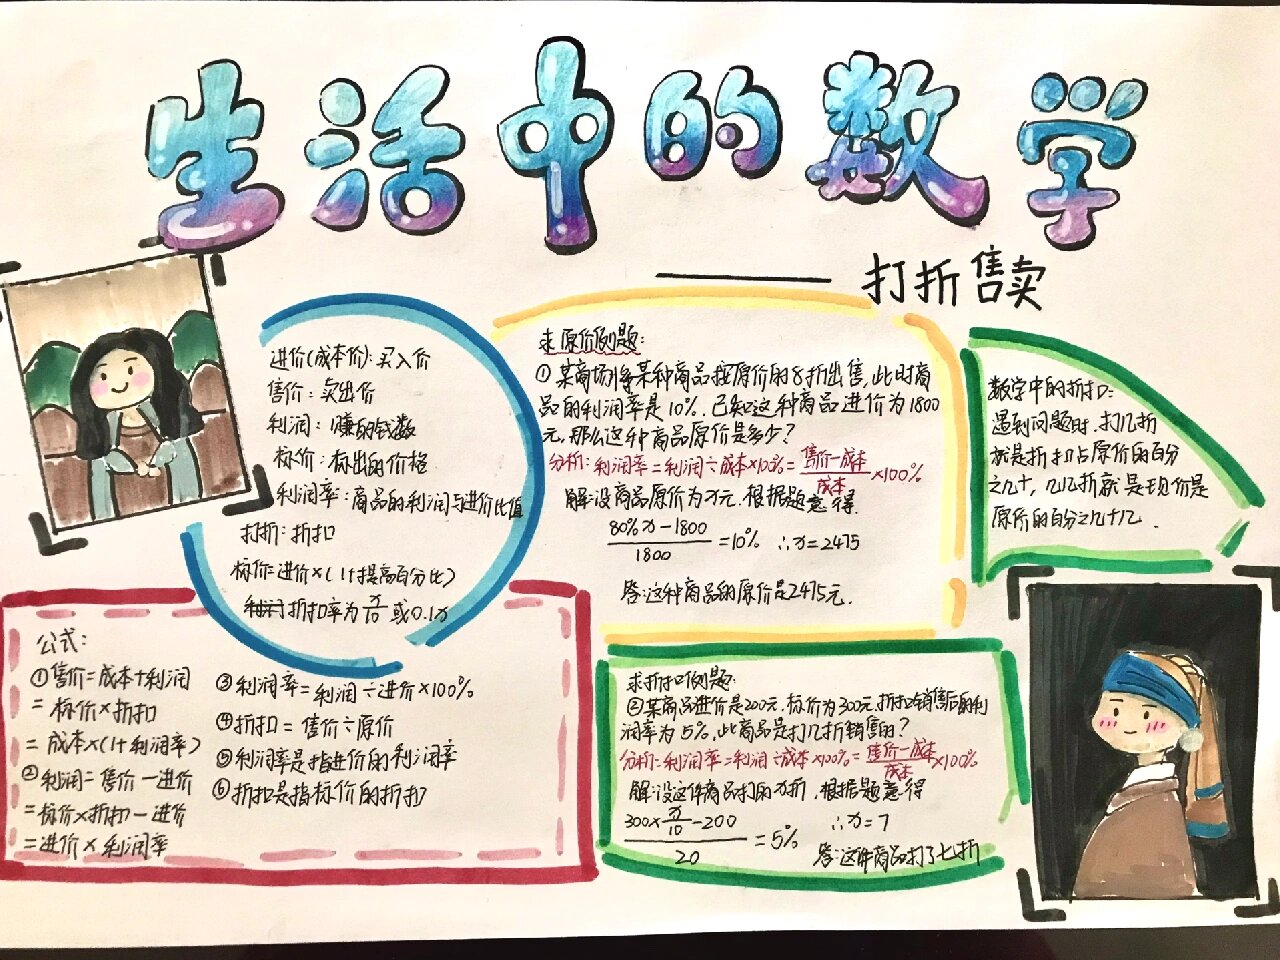 生活中的数学
——打折售卖
进价(成本价):买入价
售价:卖出价
利润:赚的钱数
标价:标出的价格
利润率:商品的利润与进价比值
打折:折扣
标价=进价×(1+提高百分比)
折扣率为x/10或0.1x
公式:
①售价=成本+利润
=标价×折扣
=成本×(1+利润率)
②利润=售价-进价
=标价×折扣-进价
=进价×利润率
③利润率=利润÷进价×100%
④折扣=售价÷原价
⑤利润率是指进价的利润率
⑥折扣是指标价的折扣
求原价例题:
①某商场将某种商品按原价的8折出售,此时商
品的利润率是10%.已知这种商品进价为1800
元,那么这种商品原价是多少?
分析:利润率=利润÷成本×100%=售价-成本/成本×100%
解:设商品原价为x元.根据题意得.
80%x-1800/1800=10% ∴x=2475
答:这种商品的原价是2475元.
求折扣例题:
②某商品进价是200元.标价为300元.折扣销售后的利
润率为5%,此商品是打几折销售的?
分析:利润率=利润÷成本×100%=售价-成本/成本×100%
解:设这件商品打的x折,根据题意得
300×x/10-200/20=5% ∴x=7
答:这件商品打了七折
数学中的折扣:
遇到问题时.打几折
就是折扣占原价的百分
之几十,几几折就是现价是
原价的百分之几十几.